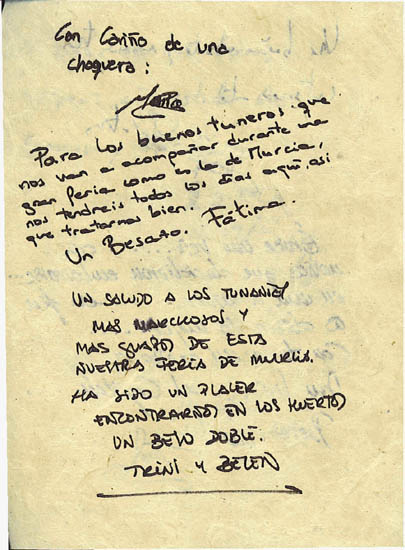 Con Cariño de una
choquera:
Para los buenos tuneros que
nos van a acompañar durante una
gran feria como es la de Murcia,
nos tendreis todos los dias aqui, asi
que tratarnos bien.
Un Besazo. Fátima.
UN SALUDO A LOS TUNANTES
MAS MARCHOSOS Y
MAS GUAPOS DE ESTA
NUESTRA FERIA DE MURCIA.
HA SIDO UN PLACER
ENCONTRARNOS EN LOS HUERTOS
UN BESO DOBLE.
TRINI Y BELEN